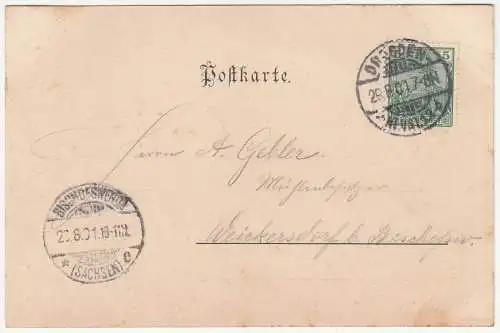 DRESDEN
5
Postkarte.
29.8.01.7-8N.
Herrn A. Gebler
Mühlenbesitzer
BISCHOFSWERDA
29.8.01.10-11N.
Weickersdorf b. Bischofsw.
* (SACHSEN) c